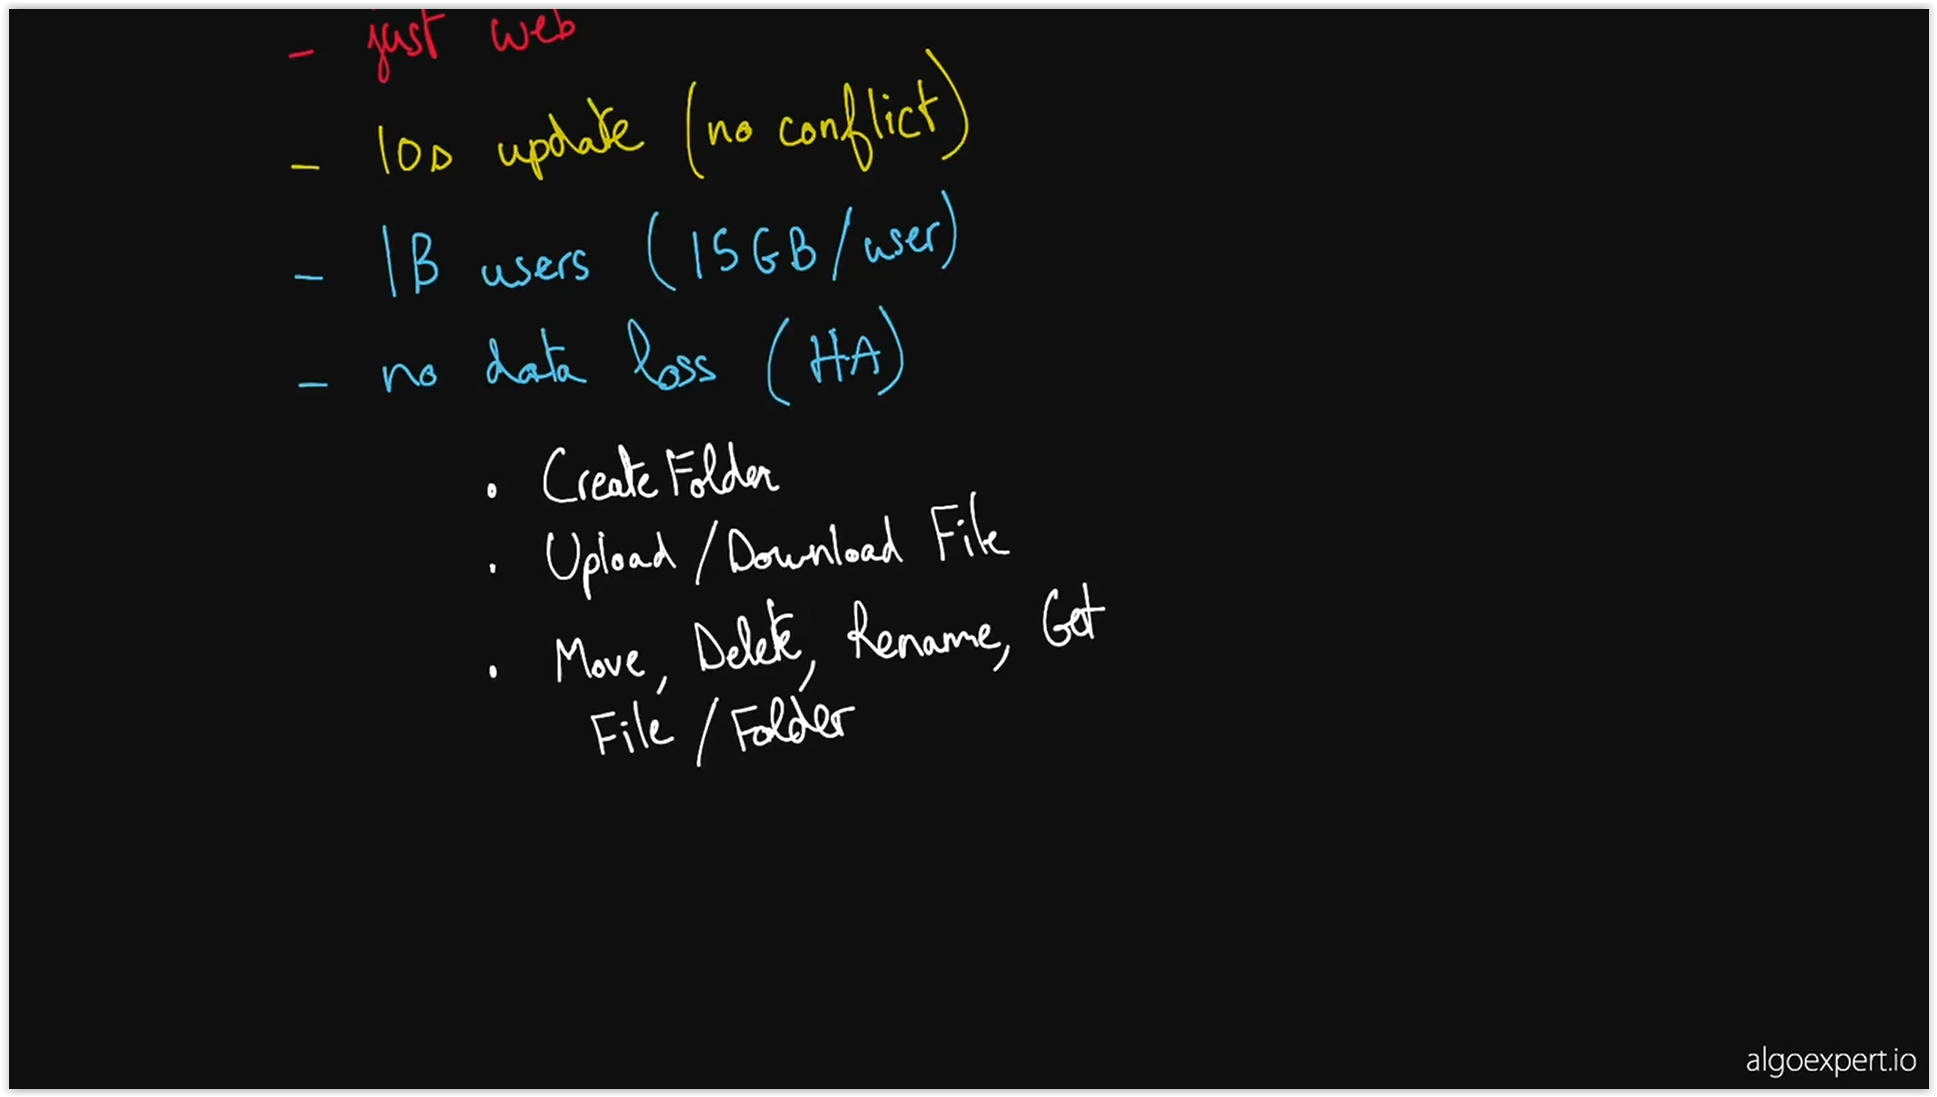 - just web
- 10s update (no conflict)
- 1B users (15GB/user)
- no data loss (HA)
• CreateFolder
• Upload/Download File
• Move, Delete, Rename, Get
File/Folder
algoexpert.io